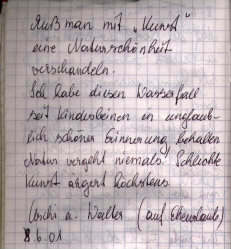 Muß man mit „Kunst"
eine Naturschönheit
verschandeln.
Ich habe diesen Wasserfall
seit Kindesbeinen in unglaub-
lich schöner Erinnerung behalten
Natur vergeht niemals! Schlichte
Kunst ärgert höchstens
u. Walter (auf Eheurlaub)
8.6.01